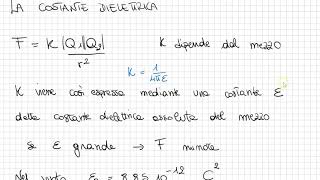 LA COSTANTE DIELETTRICA
F = K |Q₁||Q₂| / r²   K dipende dal mezzo
K = 1 / 4πε
K viene così espressa mediante una costante ε
detta costante dielettrica assoluta del mezzo
se ε grande → F minore
Nel vuoto ε₀ = 8,85 10⁻¹² C²